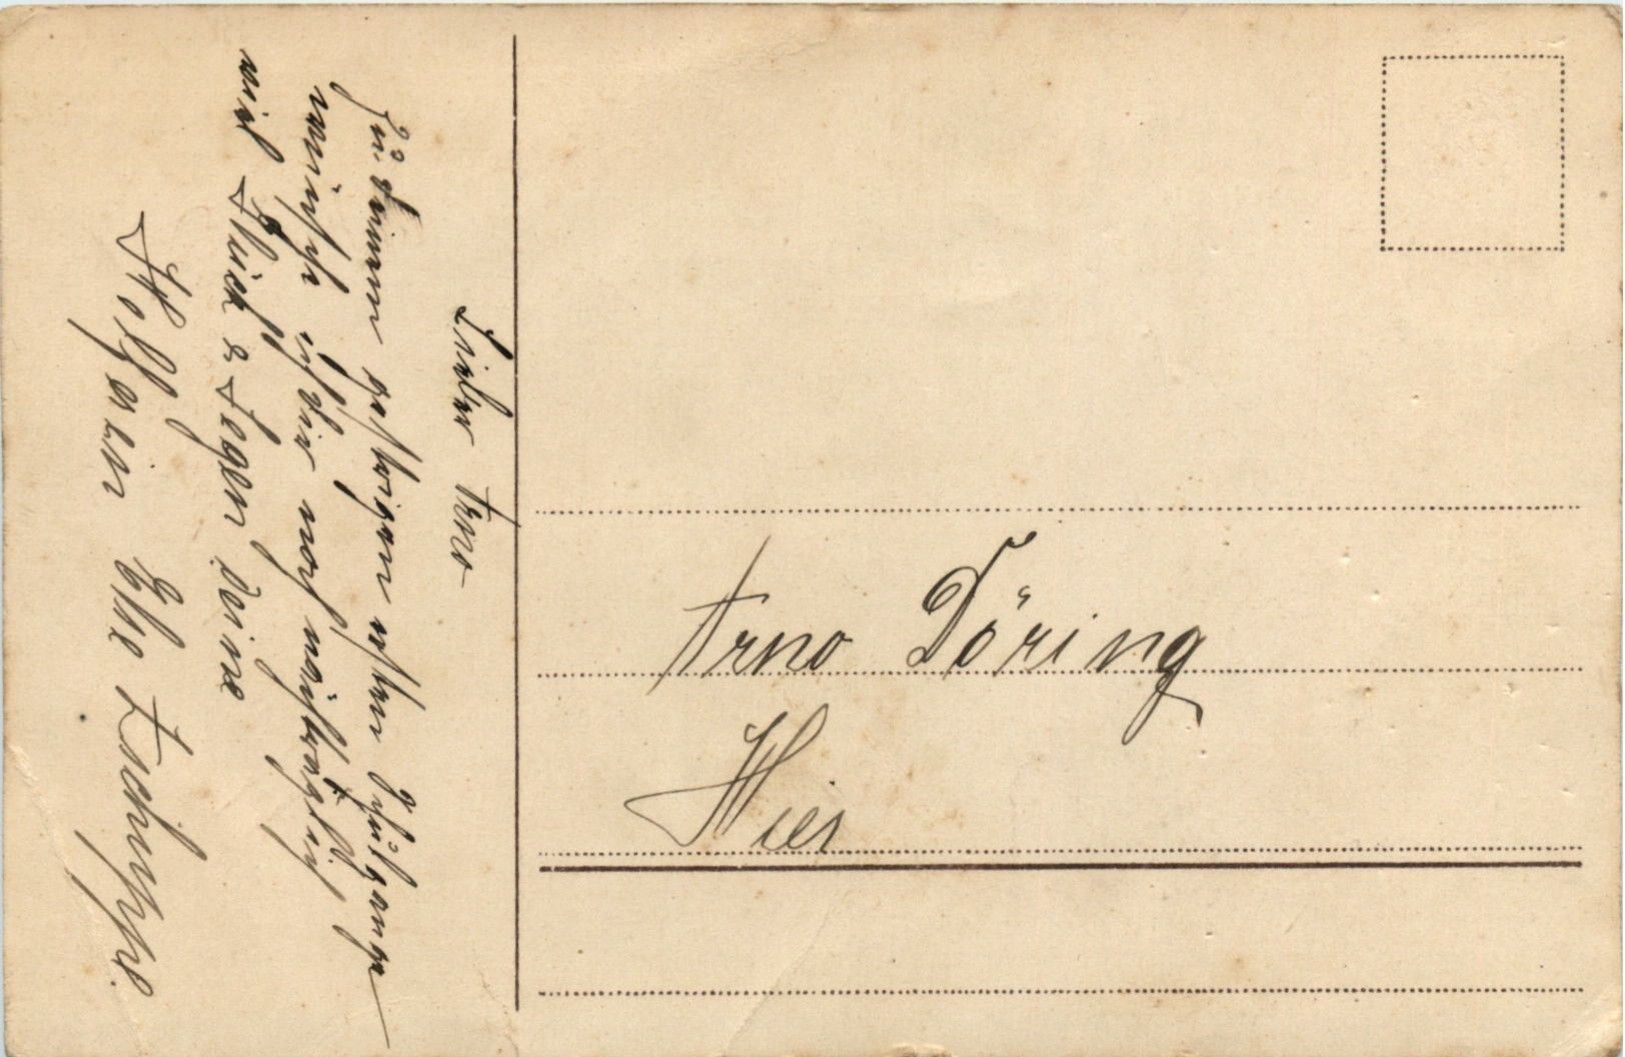 Lieber Arno
Zu Deinem gestrigen ersten Schulgange
wünsche ich Dir noch nachträglich
viel Glück & Segen Deine
Holzerin Else Eschrich.
Arno Döring
Hier